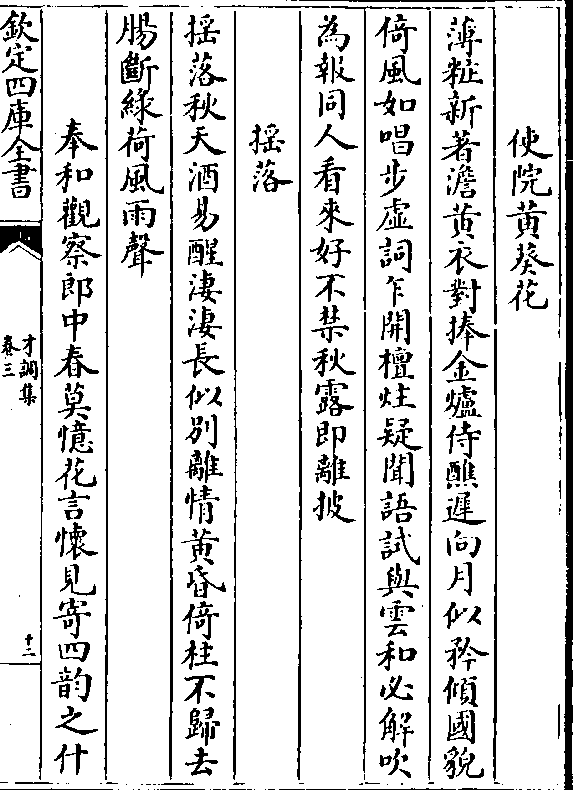 使院黄葵花
薄粧新著澹黄衣對捧金爐侍醮遲向月似矜傾國貌
倚風如唱步虛詞乍開檀炷疑聞語試與雲和必解吹
為報同人看來好不禁秋露即離披
揺落
揺落秋天酒易醒淒淒長似别離情黄昏倚柱不歸去
腸斷緑荷風雨聲
奉和觀察郎中春莫憶花言懷見寄四韵之什
欽定四庫全書
才調集
卷三
十二